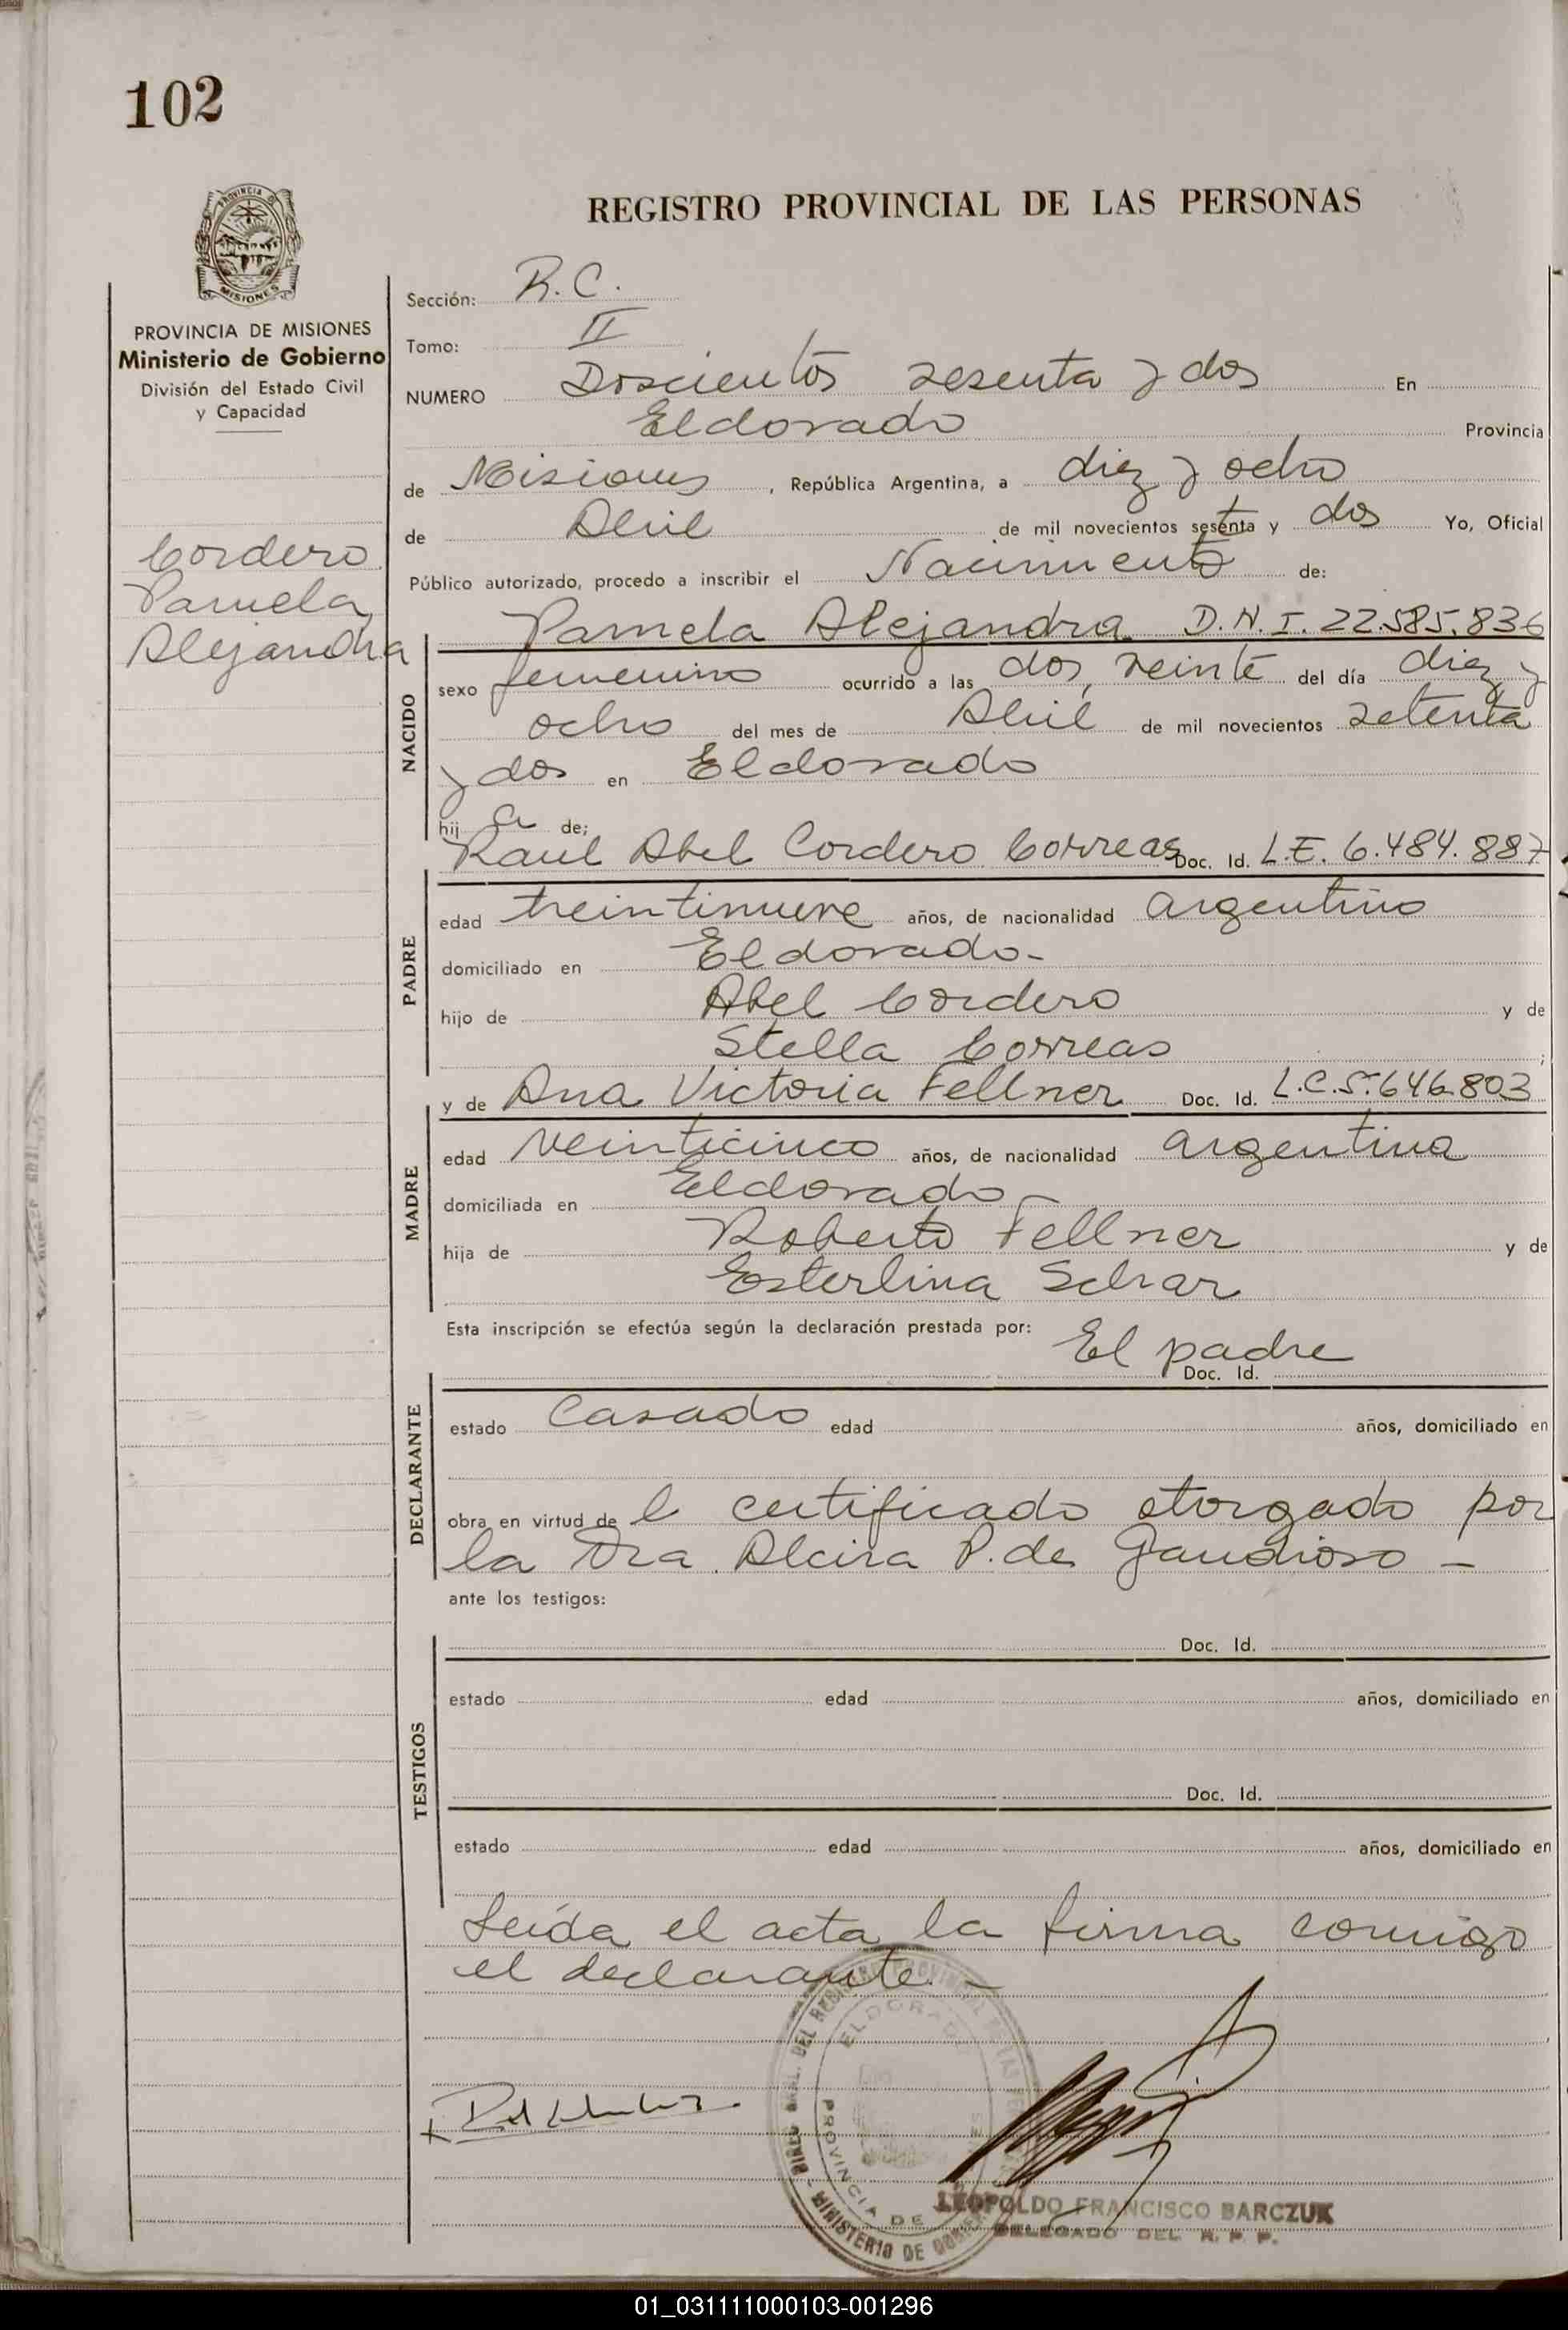 102
REGISTRO PROVINCIAL DE LAS PERSONAS
MISIONES
PROVINCIA DE MISIONES
Ministerio de Gobierno
División del Estado Civil
y Capacidad
Cordero
Pamela
Alejandra
Sección: R.C.
Tomo: II
NUMERO Doscientos sesenta y dos En
Eldorado Provincia
de Misiones, República Argentina, a diez y ocho
de Abril de mil novecientos setenta y dos Yo, Oficial
Público autorizado, procedo a inscribir el Nacimiento de:
Pamela Alejandra D.N.I. 22.585.836
NACIDO
sexo femenino ocurrido a las dos, veinte del día diez y
ocho del mes de Abril de mil novecientos setenta
y dos en Eldorado
hija de;
Raul Abel Cordero Correas Doc. Id. L.E. 6.484.887
PADRE
edad treintinueve años, de nacionalidad argentino
domiciliado en Eldorado-
hijo de Abel Cordero y de
Stella Correas ;
y de Ana Victoria Fellner Doc. Id. L.C.5.646.803
MADRE
edad veinticinco años, de nacionalidad argentina
domiciliada en Eldorado-
hija de Roberto Fellner y de
Esterlina Schar
Esta inscripción se efectúa según la declaración prestada por: El padre
Doc. Id.
DECLARANTE
estado Casado edad años, domiciliado en
obra en virtud de l certificado otorgado por
la Dra. Alcira P. de Gaudioso -
ante los testigos:
Doc. Id.
TESTIGOS
estado edad años, domiciliado en
Doc. Id.
estado edad años, domiciliado en
Leída el acta la firma conmigo
el declarante. -
ELDORADO
PROVINCIA DE
MINISTERIO DE GOBIERNO
LEOPOLDO FRANCISCO BARCZUK
DELEGADO DEL R. P. P.
01_031111000103-001296